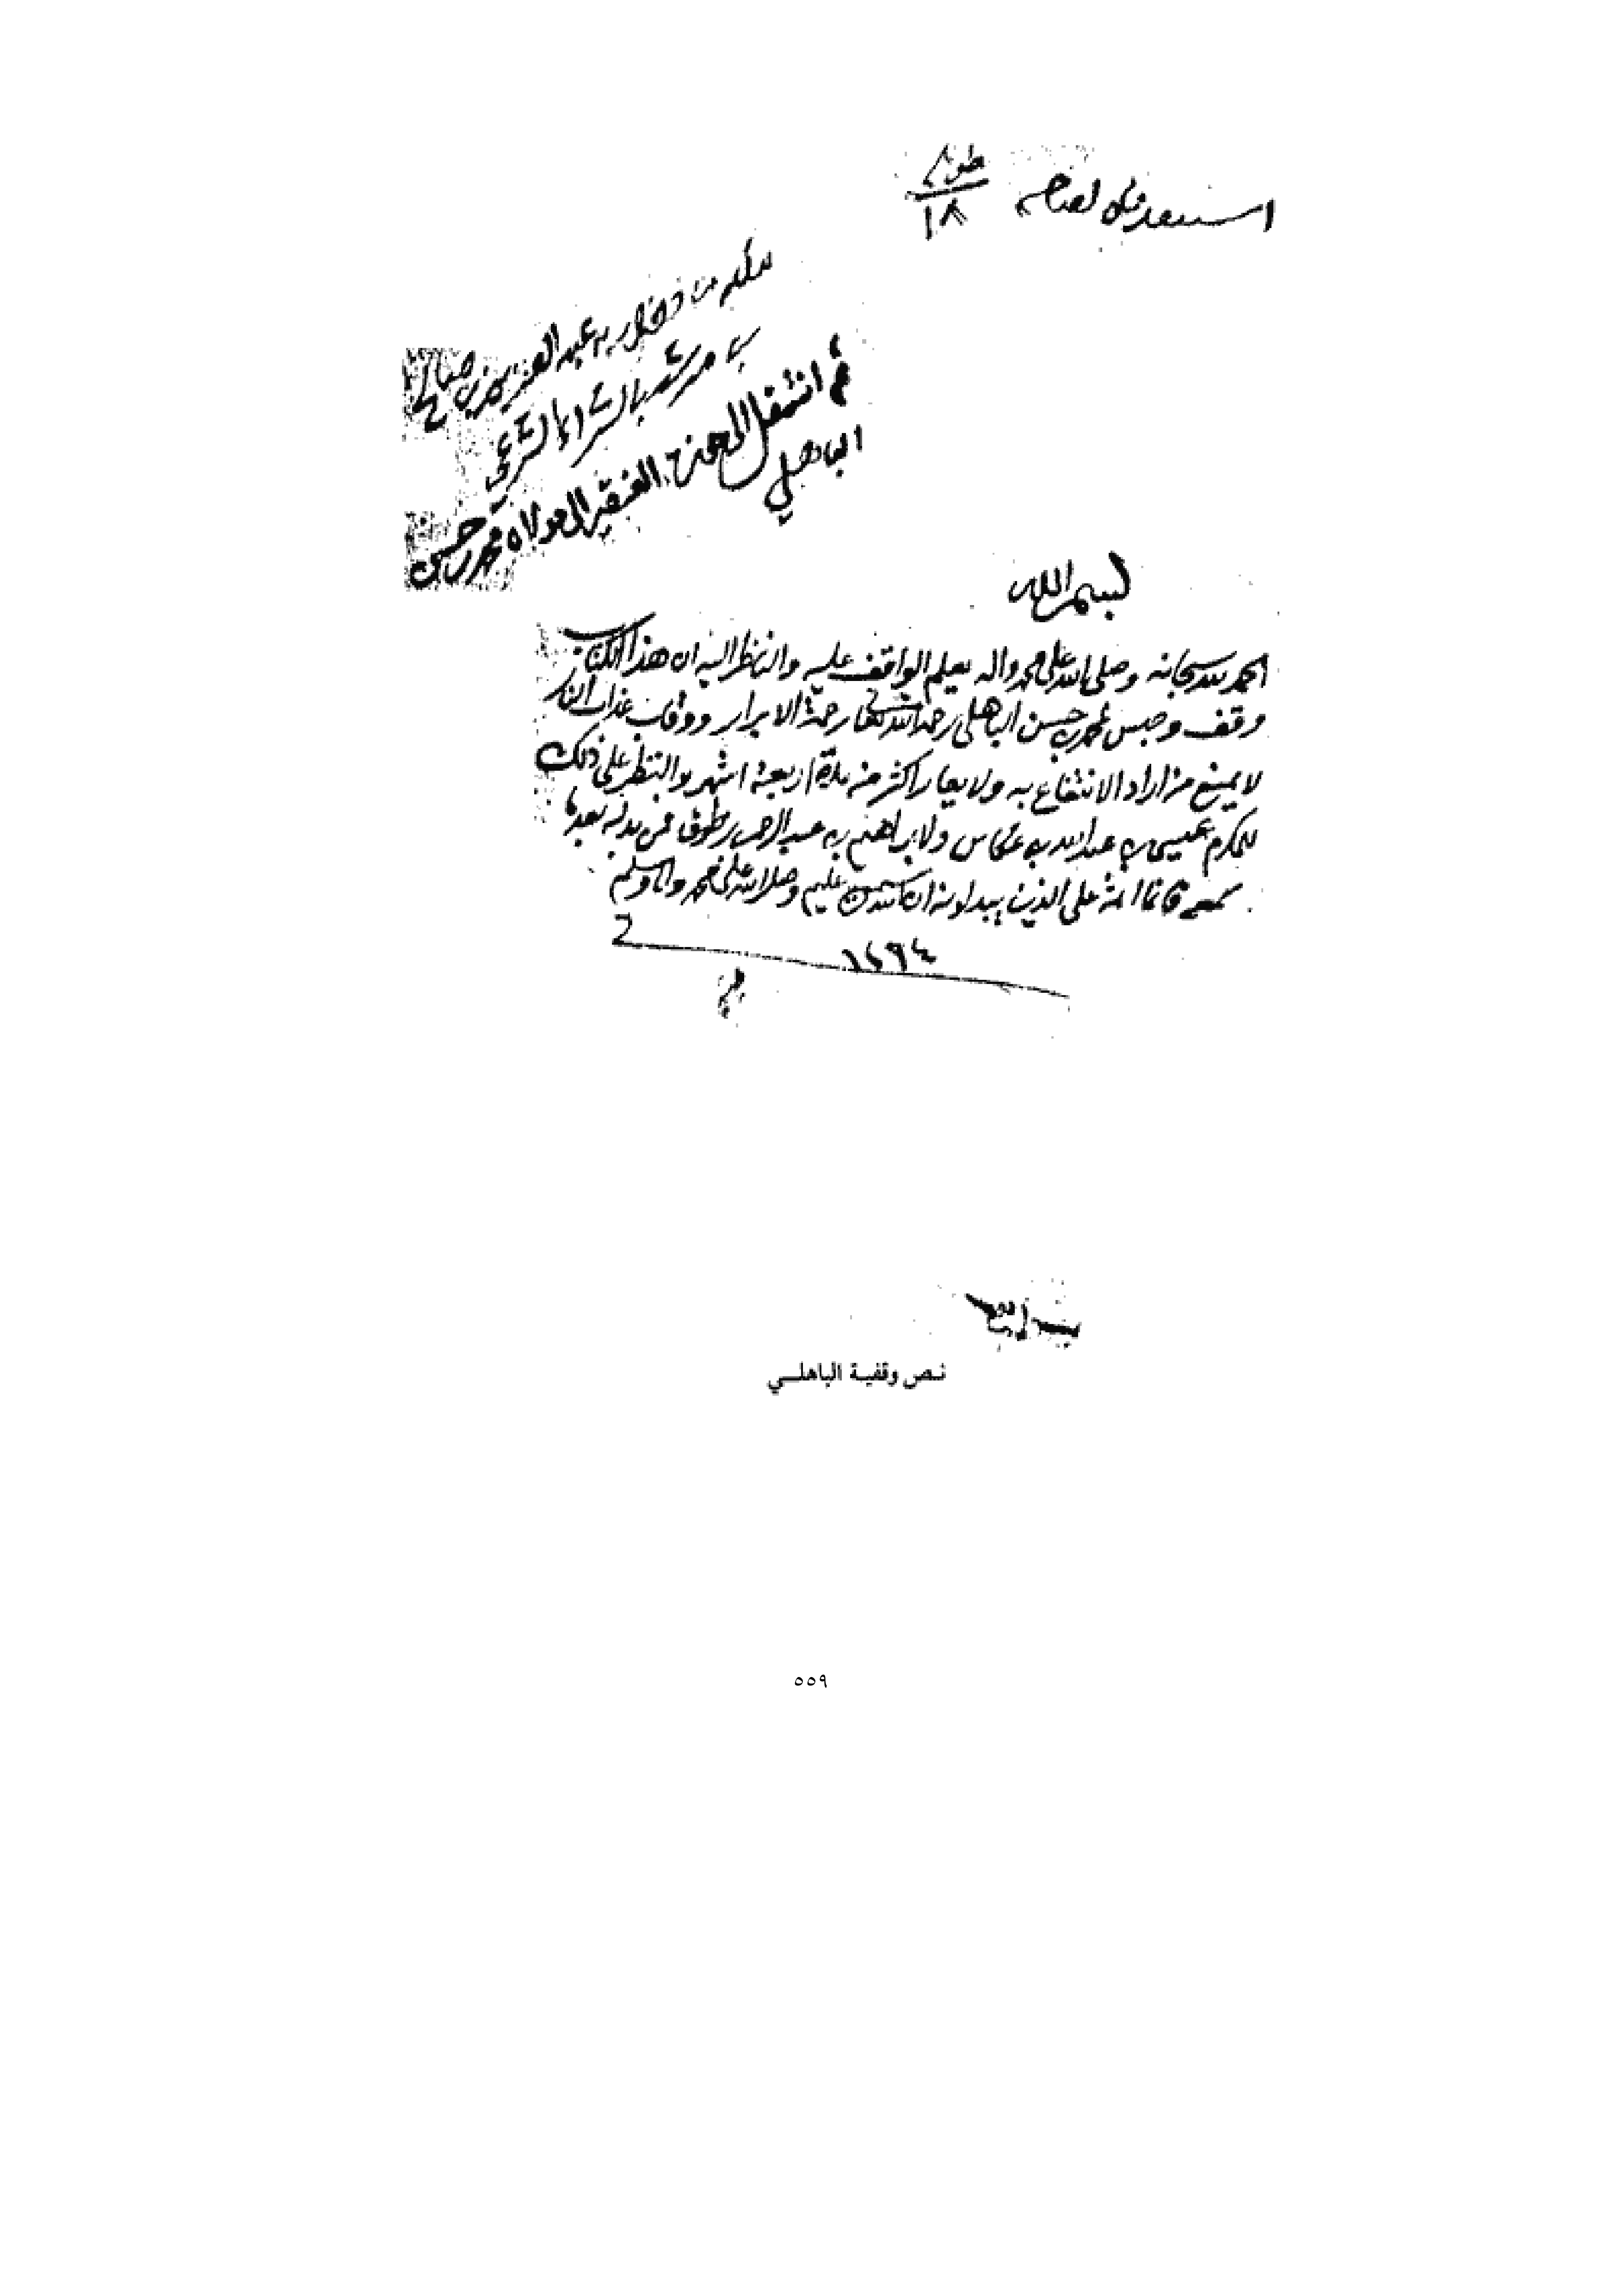 ١٨
من فضل ربه عبد العزيز بن صالح
بن مرشد بالشراء الشرعي
ثم انتقل الى حوزة الفقير الى مولاه محمد بن حسن
الباهلي
بسم الله
الحمد لله سبحانه وصلى الله على محمد واله يعلم الواقف عليه والناظر اليه ان هذا الكتاب
وقف وحبس محمد بن حسن الباهلي رحمه الله تعالى رحمة الابرار ووقاه عذاب النار
لا يمنع من اراد الانتفاع به ولا يعار اكثر من مدة اربعة اشهر والنظر على ذلك
للمكرم عيسى بن عبد الله بن عكاس ولابراهيم بن عبد الرحمن فمن بدله بعدما
سمعه فانما اثمه على الذين يبدلونه ان الله سميع عليم وصلى الله على محمد واله وسلم
١٢٩٤
نص وقفية الباهلي
٥٥٩